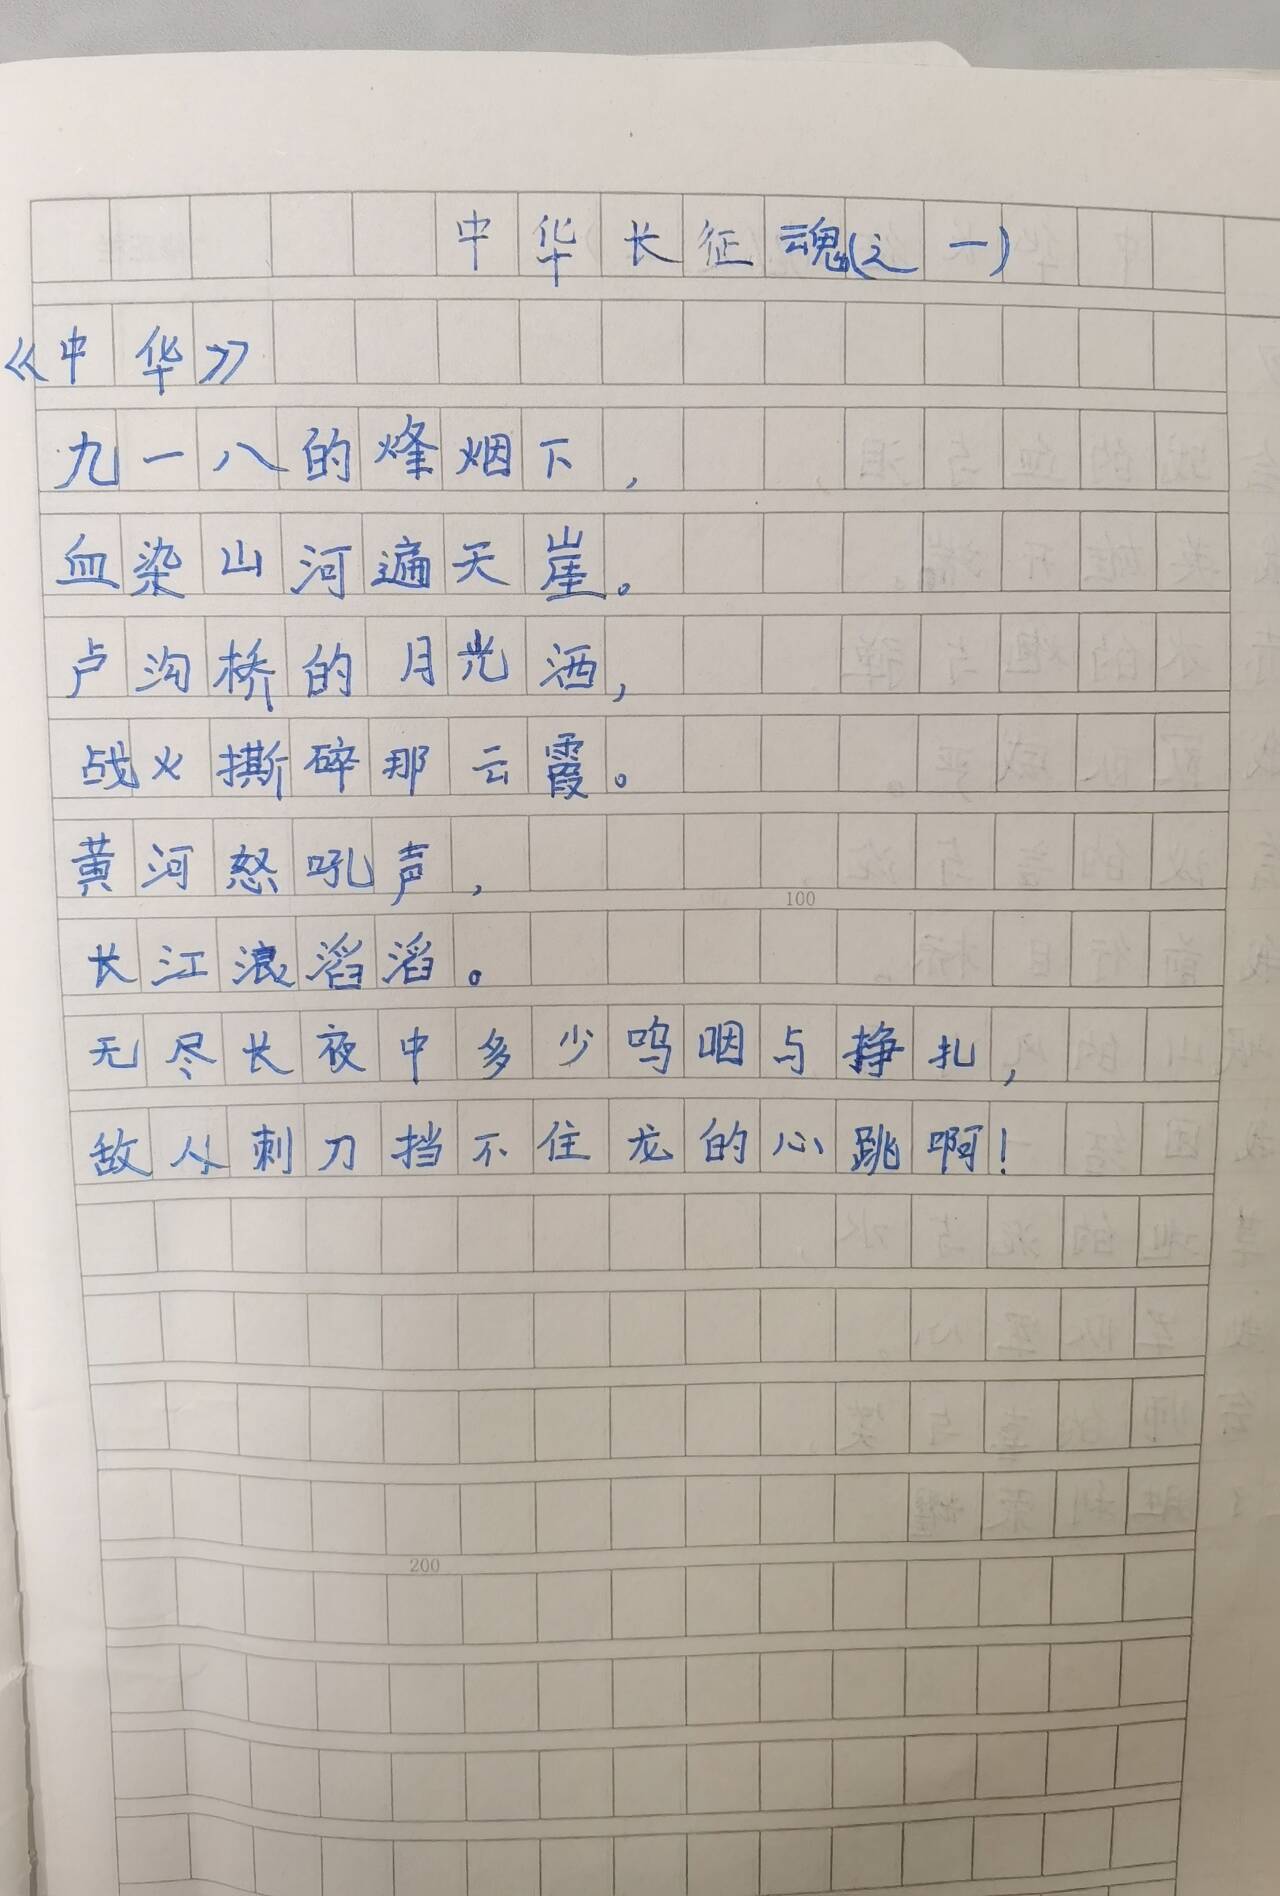 中华长征魂(之一)
《中华》
九一八的烽烟下,
血染山河遍天崖。
卢沟桥的月光洒,
战火撕碎那云霞。
黄河怒吼声,
100
长江浪滔滔。
无尽长夜中多少呜咽与挣扎,
敌人刺刀挡不住龙的心跳啊!
200